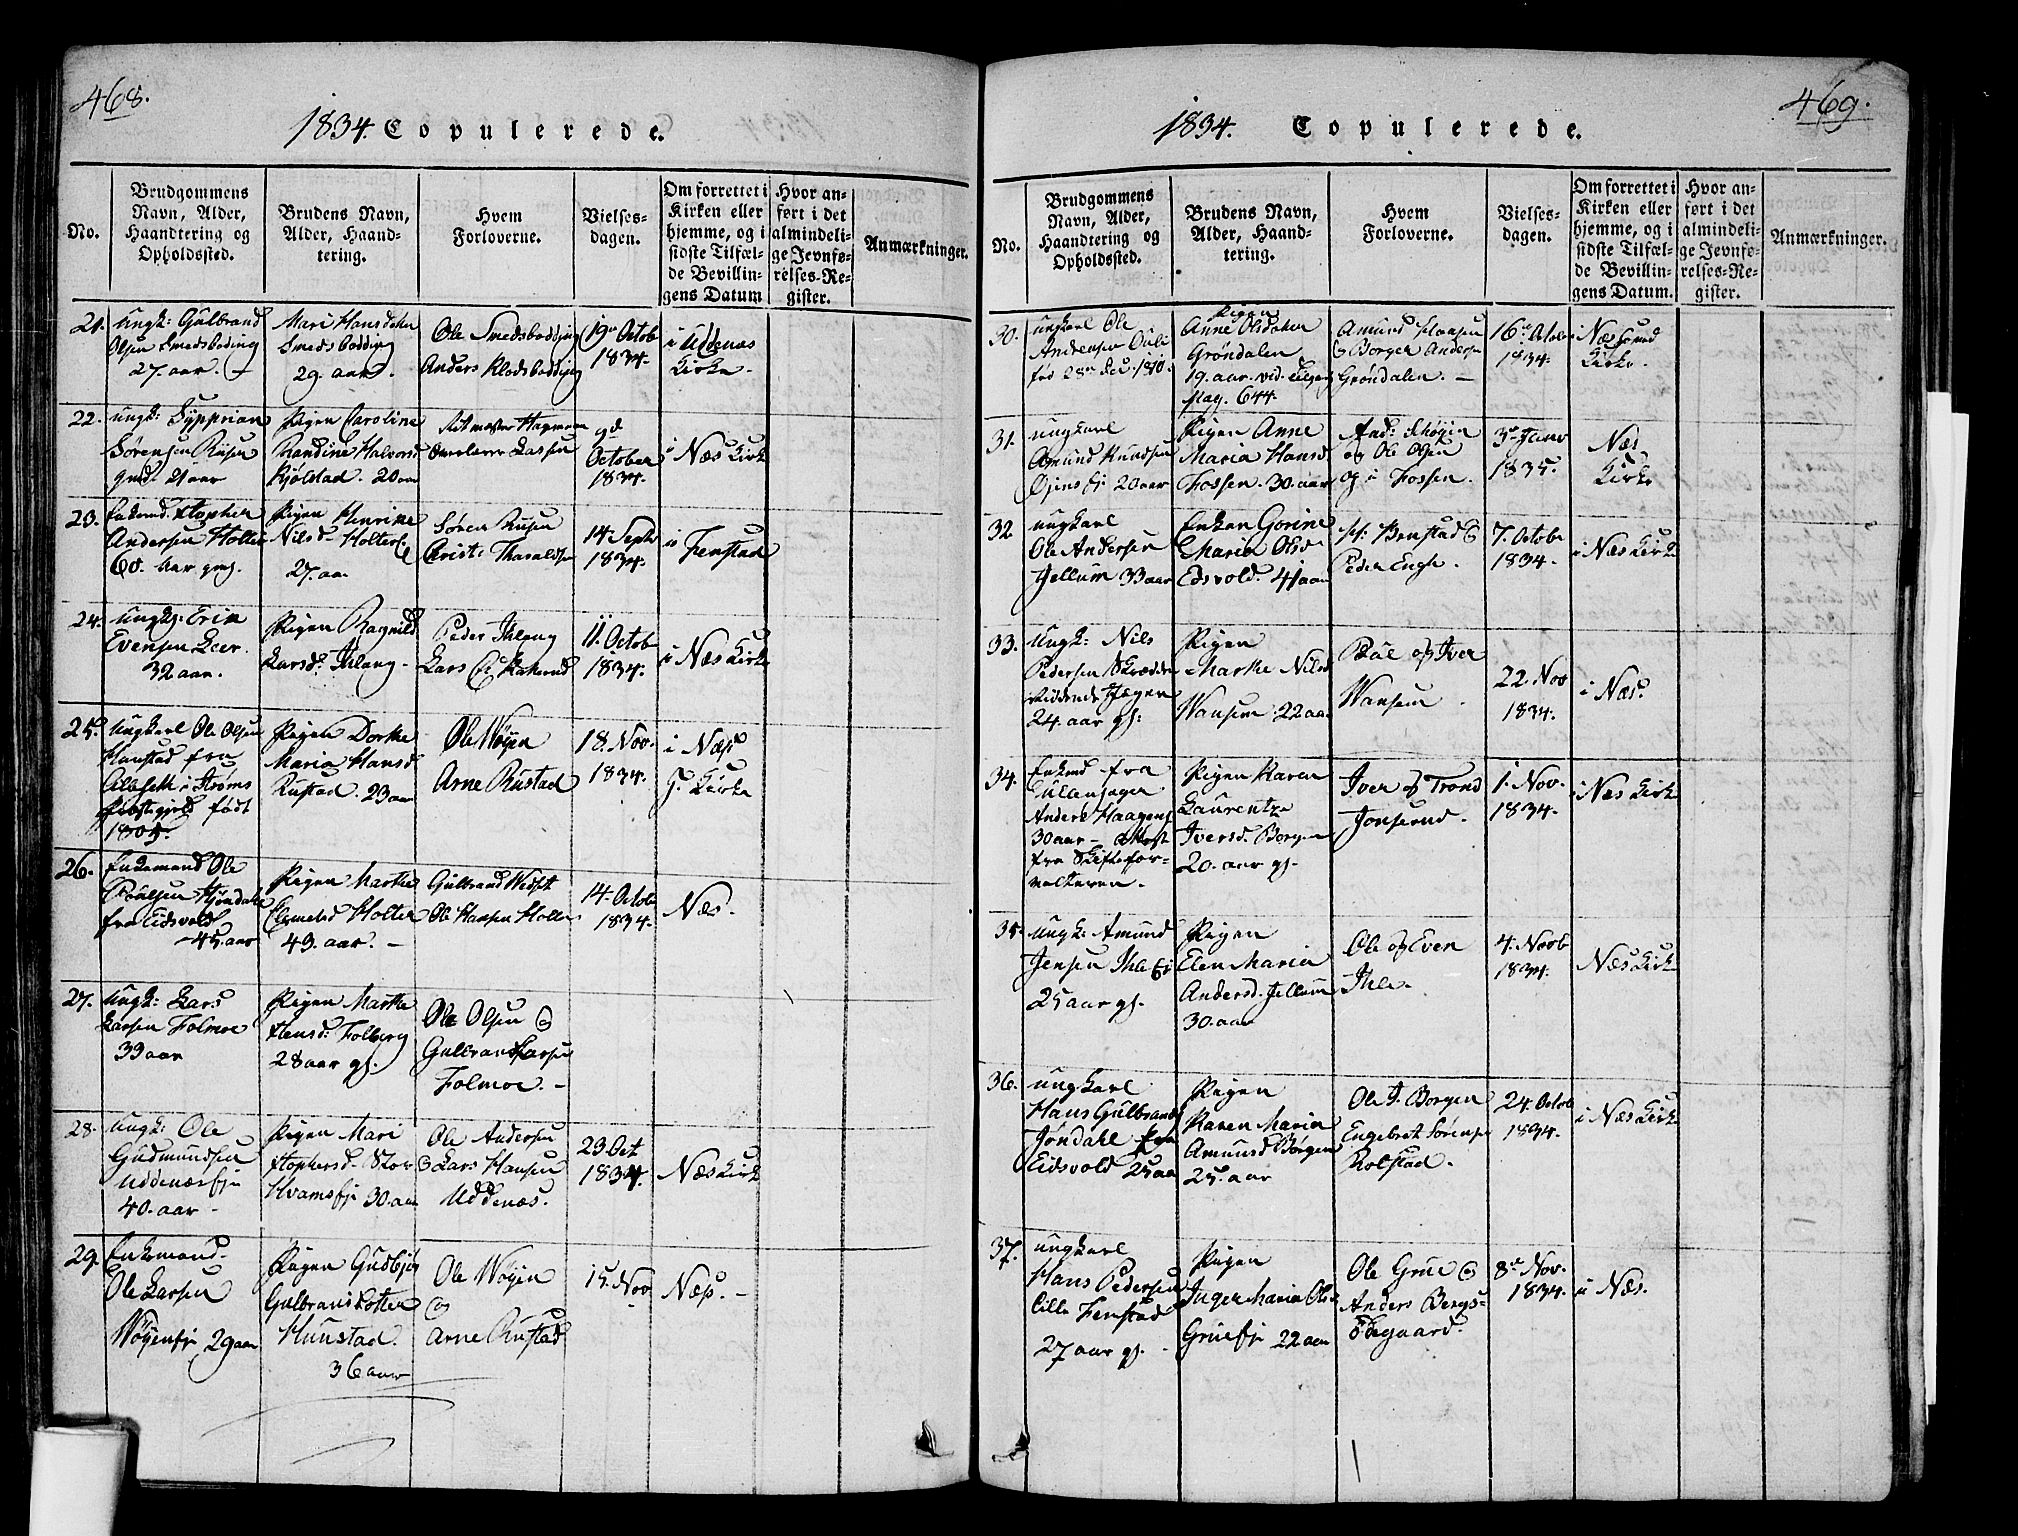 468.
1834. Copulerede.
No.
Brudgommens
Navn, Alder,
Haandtering og
Opholdssted.
Brudens Navn,
Alder, Haand-
tering.
Hvem
Forloverne.
Vielses-
dagen.
Om forrettet i
Kirken eller
hjemme, og i
sidste Tilfæl-
de Bevillin-
gens Datum
Hvor an-
ført i det
almindeli-
ge Jevnfø-
relses-Re-
gister.
Anmærkninger.
21.
Ungk: Gulbrand
Olsen Smedsboding
27. aar.
Mari Hansdater
Smedsbodding
29. aar.
Ole Smedsbodding
Anders Klodsbodding
19de Octob
1834.
i Uddenæs
Kirke.
22.
Ungk:
Sørensen
21 aar
Pigen Caroline
Randine Halvorsd
Kjölstad. 20 aar
October
1834.
i Næs Kirke
23.
Enkemd. Stopher
Andersen Holter
60. Aar
Pigen Henrike
Nilsd Holter
27. aar
Søren
14 Sept
1834.
i Fenstad
24.
Ungk: Erik
Evensen Leer.
32 aar.
Pigen Ragnild
Larsd. Ihlang
Peder Ihlang
Lars
11. Octob
1834.
i Næs Kirke
25.
Ungkarl Ole Olsen
Hanstad fra
i Strøms
født
1805.
Pigen Dorthe
Maria Hansd
Rustad. 23 aar
Ole Wøyen
Arne Rustad
18. Nov.
1834.
i Næs
Kirke
26.
Enkemand Ole
Poulsen
fra Eidsvold
45. aar
Pigen Marthe
Holter
49. aar.
Gulbrand
Ole Hansen Holter
14. Octob
1834.
Næs.
27.
Ungk: Lars
Larsen Folmoe
39 aar
Pigen Marthe
Folberg
28 aar gl.
Ole Olsen &
Gulbrand Larsen
Folmoe.
28.
Ungk: Ole
Gudmundsen
Uddenæs
40. aar
Pigen Mari
Stophersd. Stor
Hvams 30. aar
Ole Andersen
& Lars Hansen
Uddenæs.
23 Oct
1834.
Næs Kirke
29.
Enkemand
Ole Larsen
Wøyen 29 aar
Pigen
Gulbrans
Hunstad.
36 aar
Ole Wøyen
&
Arne Rustad
15. Nov
Næs.
469.
1834. Copulerede.
No.
Brudgommens
Navn, Alder,
Haandtering og
Opholdssted.
Brudens Navn,
Alder, Haand-
tering.
Hvem
Forloverne.
Vielses-
dagen.
Om forrettet i
Kirken eller
hjemme, og i
sidste Tilfæl-
de Bevillin-
gens Datum.
Hvor an-
ført i det
almindeli-
ge Jevnfø-
relses-Re-
gister.
Anmærkninger.
30.
Ungkarl Ole
Andreasen
fød 28de Dec. 1810.
Pigen
Anne Olsdater
Grøndalen
19. aar. vid.
pag. 644.
Amund Hansen
& Borger Andersen
Grøndalen.
16de Octob
1834.
i Næs
Kirke.
31.
Ungkarl
Amund Knudsen
20 aar
Pigen Anne
Maria Hansd
Fossen. 30. aar
og Ole Olsen
Fossen.
1835.
Næs
Kirke
32
Ungkarl
Ole Andersen
Jellum 33 aar
Enken Gorine
Maria Olsd
Edsvold. 41 aar
Benstad &
Peder Engh.
7. Octob
1834.
i Næs Kirke
33.
Ungk: Nils
Pedersen
24. aar gl:
Pigen
Marthe Nilsd
Wansem 22 aar
Poul og Iver
Wansem.
22 Nov
1834.
i Næs.
34.
Enkmd fra
Ullensager
Anders Haagens
30 aar
fra Skiftefor-
valteren.
Pigen Karen
Laurentza
Iversd. Borgen
20. aar gl.
Iver og Trond
Jonsrud.
1. Nov.
1834.
i Næs Kirke
35.
Ungk: Amund
Jensen Ihle
25 aar gl.
Pigen
Elen Maria
Andersd. Jellum
30. aar
Ole og Even
Ihle.
4. Novb
1834.
Næs Kirke
36.
Ungkarl
Hans Gulbrands
Jøndahl fra
Eidsvold 25 aar
Pigen
Karen Maria
Amunsd Borgen
25. aar
Ole J. Borgen
Engebret Sørensen
Rolstad.
24. Octob
1834.
i Næs Kirke
37.
Ungkarl
Hans Pedersen
Lille Fenstad
27 aar gl.
Pigen
Inger Maria Olsd
Grue 22 aar
Ole Grue &
Anders Bergs-
Ødegaard.
8de Nov.
1834.
i Næs.